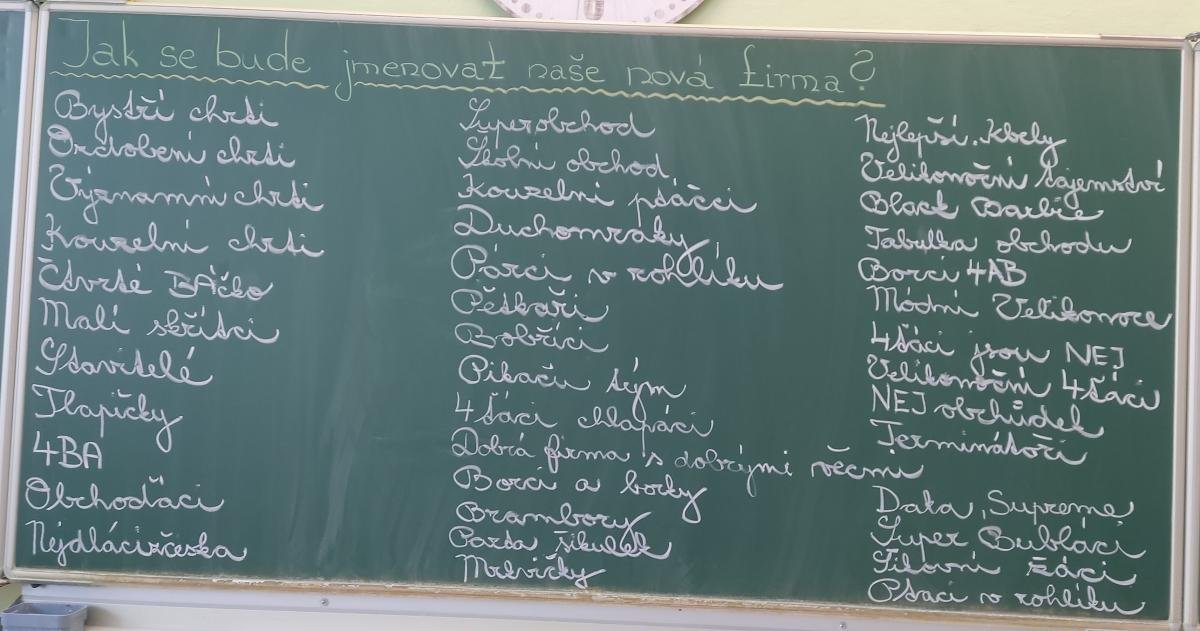 Jak se bude jmenovat naše nová firma?
Bystří chrti
Ozdobení chrti
Významní chrti
Kouzelní chrti
Čtvrté BÁčko
Malí skřítci
Stavitelé
Tlapičky
4BA
Obchoďáci
Superobchod
Školní obchod
Kouzelní ptáčci
Duchomraky
Párci v rohlíku
Pěškaři
Bobříci
Pikaču tým
4ťáci chlapáci
Dobrá firma s dobrými věcmi
Borci a borky
Brambory
Parta šikulek
Mrkvičky
Nejlepší Kbely
Velikonoční tajemství
Black Barbie
Tabulka obchodu
Borci 4AB
Módní Velikonoce
4ťáci jsou NEJ
Velikonoční 4ťáci
NEJ obchůdek
Terminátoři
Data, Supreme
Super Bubláci
Šikovní žáci
Ptáci v rohlíku